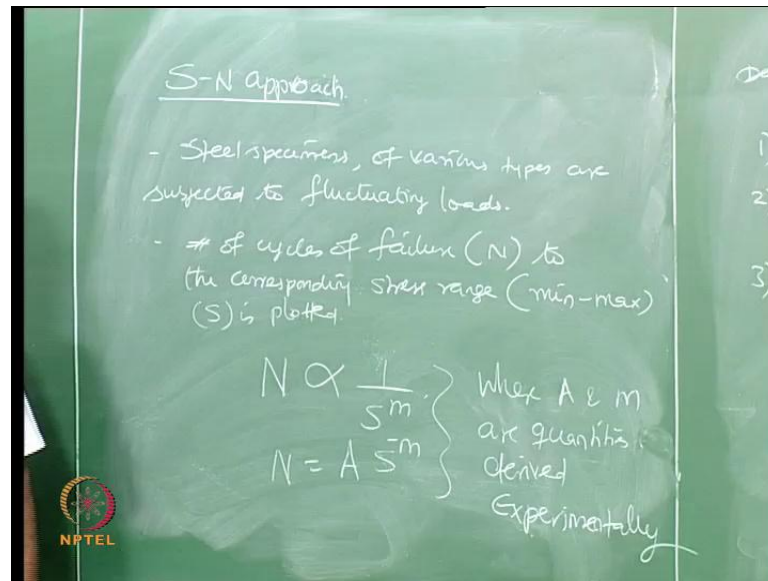 S-N approach.
- Steel specimens, of various types are
subjected to fluctuating loads.
- # of cycles of failure (N) to
the corresponding stress range (min-max)
(S) is plotted.
N ∝ 1/S^m
N = A S^-m
where A & m
are quantities
derived
Experimentally
De
1)
2)
3)
NPTEL